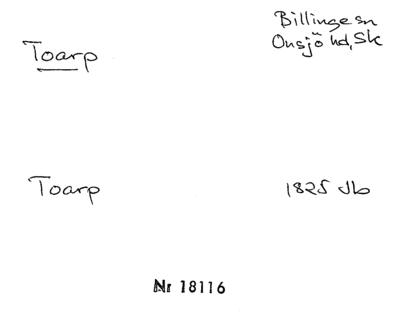 Toarp
Billinge sn
Onsjö hd, Sk
Toarp
1825 Jb
Nr 18116